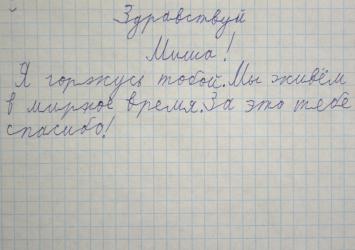 Здравствуй
Миша!
Я горжусь тобой. Мы живём
в мирное время. За это тебе
спасибо!